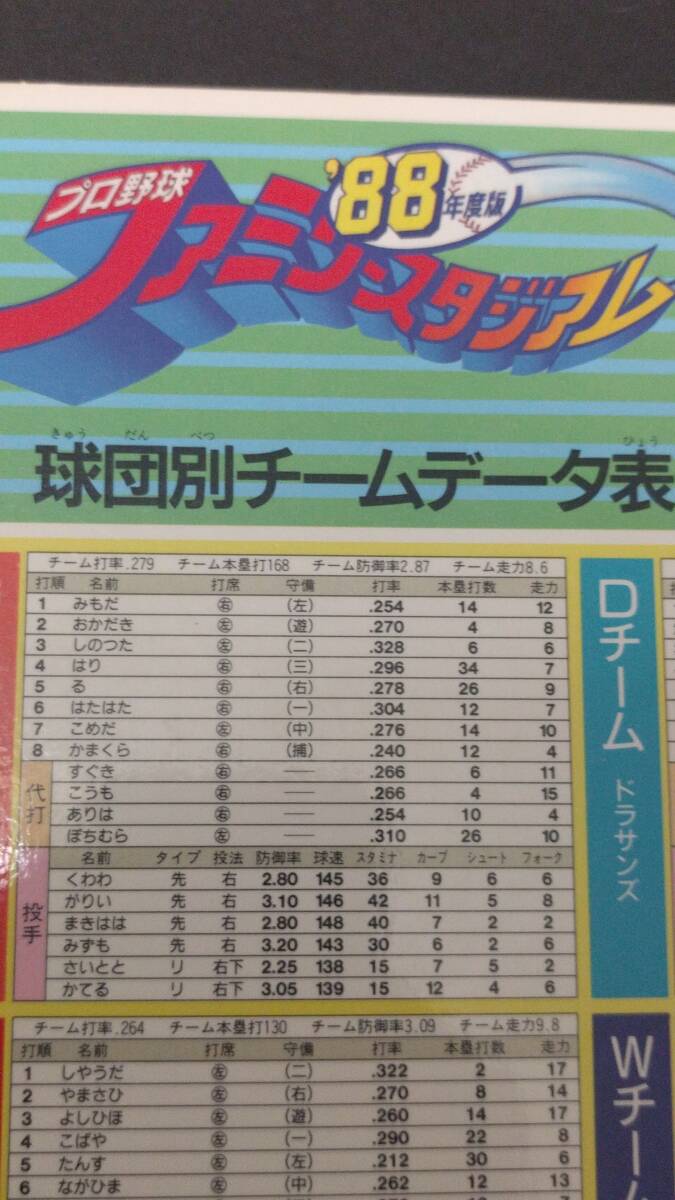 プロ野球
'88年度版
ファミリースタジアム
きゅう だん べつ ひょう
球団別チームデータ表
チーム打率.279 チーム本塁打168 チーム防御率2.87 チーム走力8.6
打順 名前 打席 守備 打率 本塁打数 走力
1 みもだ 右 (左) .254 14 12
2 おかだき 左 (遊) .270 4 8
3 しのつた 左 (二) .328 6 6
4 はり 右 (三) .296 34 7
5 る 右 (右) .278 26 9
6 はたはた 右 (一) .304 12 7
7 こめだ 左 (中) .276 14 10
8 かまくら 右 (捕) .240 12 4
代打
すぐき 右 — .266 6 11
こうも 右 — .266 4 15
ありは 右 — .254 10 4
ぼちむら 左 — .310 26 10
投手
名前 タイプ 投法 防御率 球速 スタミナ カーブ シュート フォーク
くわわ 先 右 2.80 145 36 9 6 6
がりい 先 右 3.10 146 42 11 5 8
まきはは 先 右 2.80 148 40 7 2 2
みずも 先 右 3.20 143 30 6 2 6
さいとと リ 右下 2.25 138 15 7 5 2
かてる リ 右下 3.05 139 15 12 4 6
Dチーム ドラサンズ
チーム打率.264 チーム本塁打130 チーム防御率3.09 チーム走力9.8
打順 名前 打席 守備 打率 本塁打数 走力
1 しやうだ 左 (二) .322 2 17
2 やまさひ 左 (右) .270 8 14
3 よしひほ 左 (遊) .260 14 17
4 こばや 左 (一) .290 22 8
5 たんす 左 (左) .212 30 6
6 ながひま 左 (中) .262 12 13
Wチーム